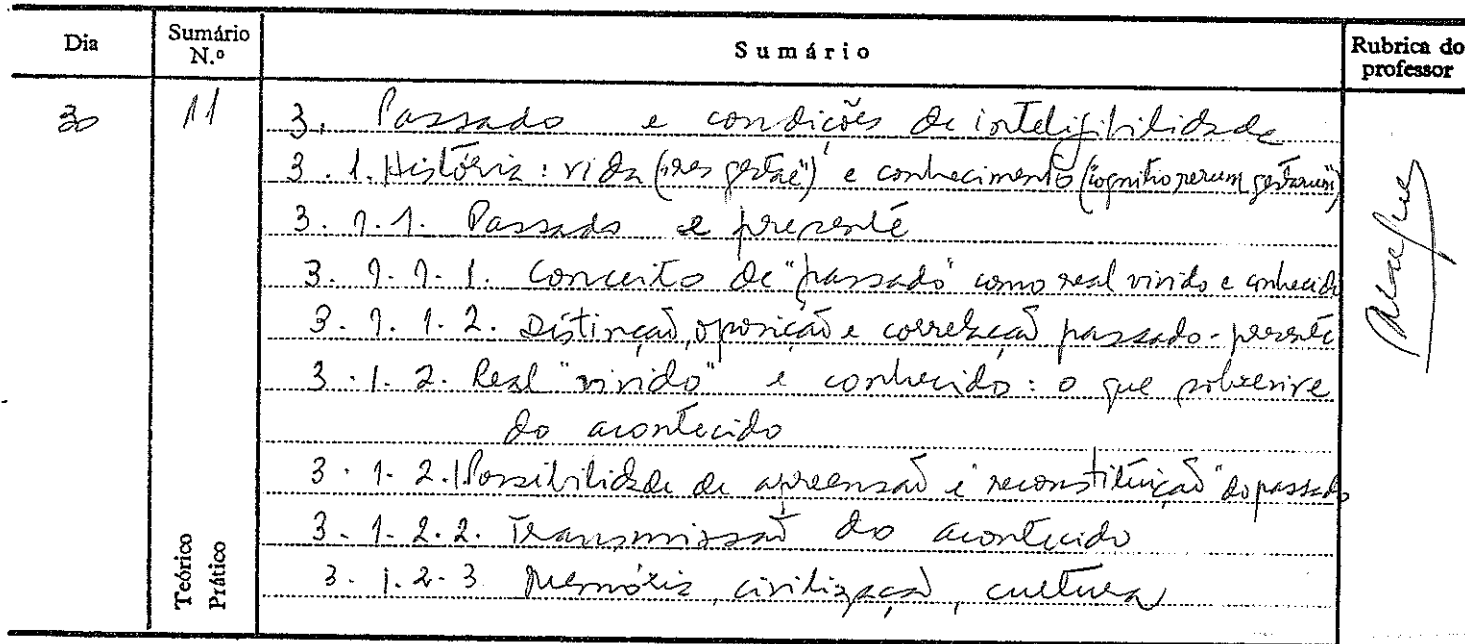 Dia Sumário N.º Sumário Rubrica do professor
30 11 3. Passado e condições de inteligibilidade
3.1. História: vida ("res gestae") e conhecimento ("cognitio rerum gestarum")
3.1.1. Passado e presente
3.1.1.1. Conceito de "passado" como real vivido e conhecido
3.1.1.2. Distinção, oposição e correlação passado-presente
3.1.2. Real "vivido" e conhecido: o que sobrevive
do acontecido
3.1.2.1 Possibilidade de apreensão e "reconstituição" do passado
3.1.2.2. Transmissão do acontecido
3.1.2.3 Memória, civilização, cultura
Teórico
Prático